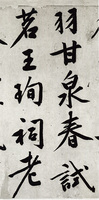 羽甘泉春試
茗王珣祠老